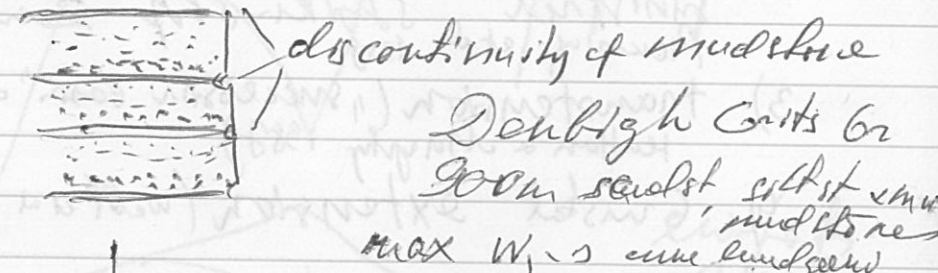 discontinuity of mudstone
Denbigh Grits Gr
900m sandst, siltst
mudstones
max W,